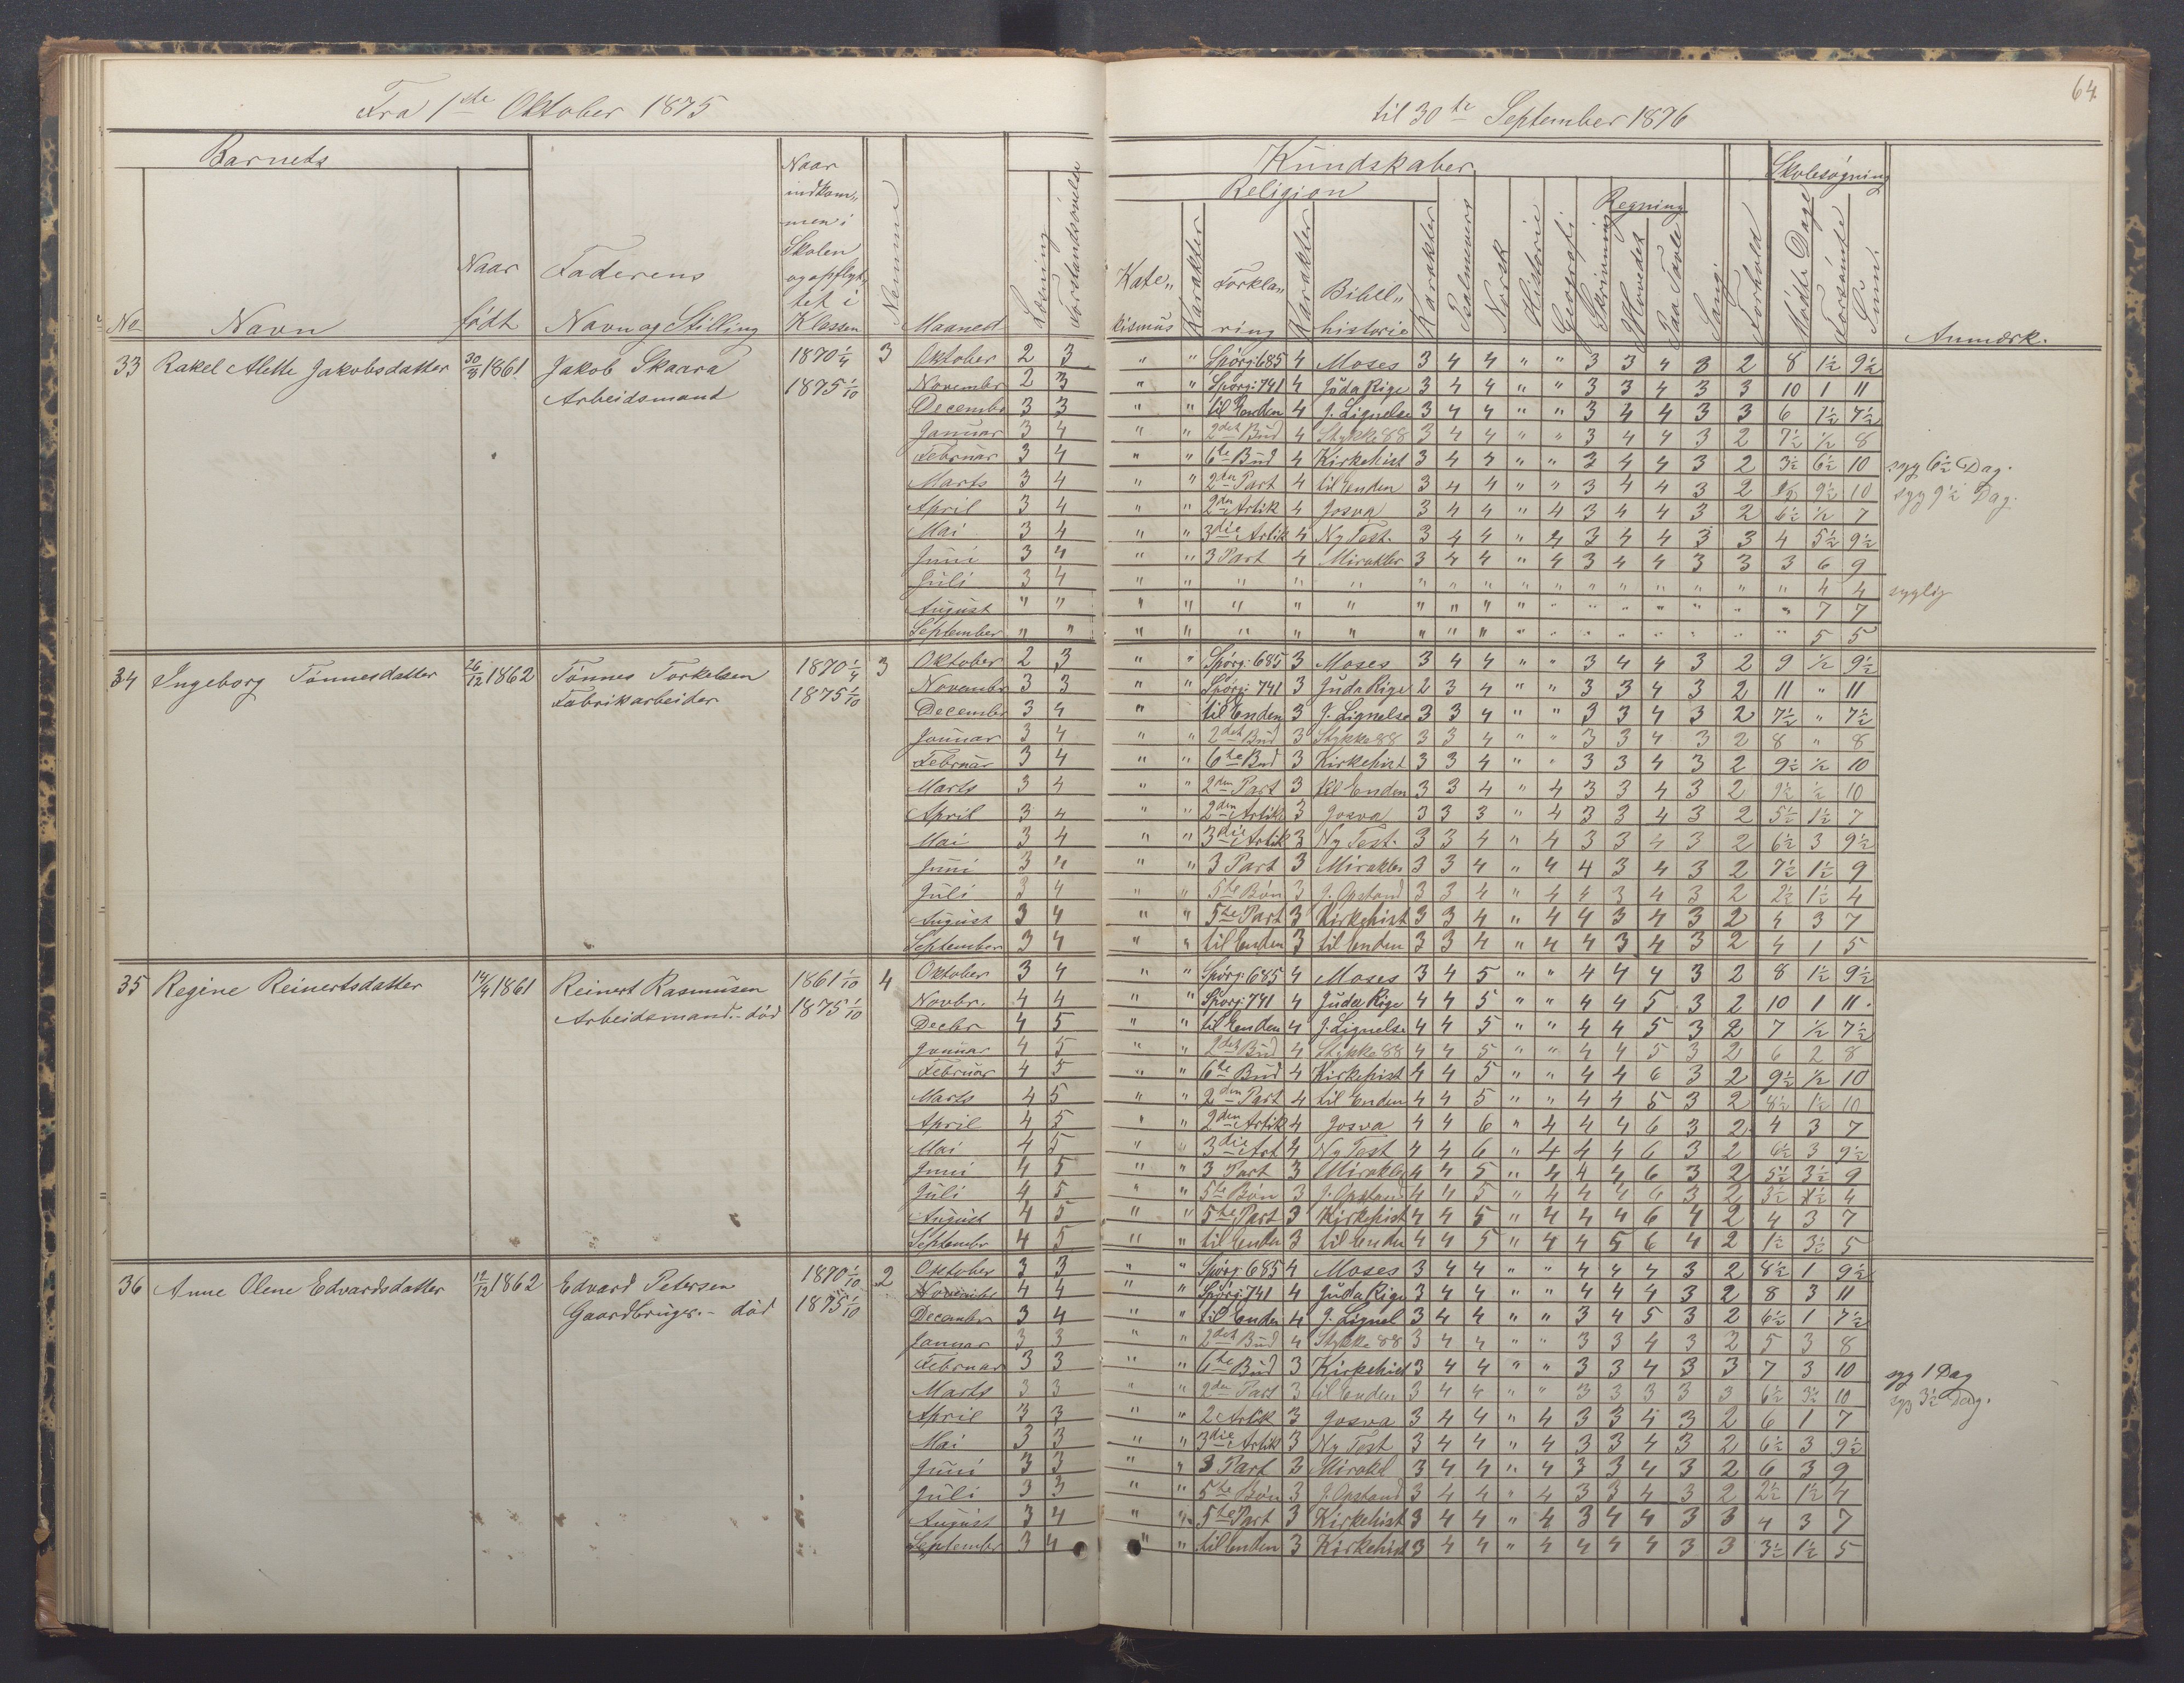 Fra 1ste Oktober 1875 til 30te September 1876
64
Barnets Kundskaber Skolesøgning
No Navn Naar født Faderens Navn og Stilling Naar indkommen i Skolen og opflyttet i Klassen Nemme Maaned Læsning Forstandsøvelse Religion Katekismus Karakter Forklaring Karakter Bibelhistorie Karakter Psalmevers Norsk Historie Geografi Skrivning Regning Hovedet Paa Tavle Sang Forhold Mødte Dage Forsømte Sum Anmærk.
33 Rakel Alette Jakobsdatter 30/8 1861 Jakob Skaara 1870 1/4 3 Oktober 2 3 " " Spørg: 685 4 Moses 3 4 4 " " 3 3 4 3 2 8 1½ 9½
Arbeidsmand 1875 1/10 November 2 3 " " Spørg: 741 4 Juda Rige 3 4 4 " " 3 3 4 3 3 10 1 11
Decembr 3 3 " " til Enden 4 J. Lignelse 3 4 4 " " 3 4 4 3 3 6 1½ 7½
Januar 3 4 " " 2det Bud 4 Stykke 88 3 4 4 " " 3 4 4 3 2 7½ ½ 8
Februar 3 4 " " 6te Bud 4 Kirkehist 3 4 4 " " 3 4 4 3 2 3½ 6½ 10 syg 6½ Dag.
Marts 3 4 " " 2den Part 4 til Enden 3 4 4 " " 3 4 4 3 2 ½ 9½ 10 syg 9½ Dag.
April 3 4 " " 2den Artik 4 Josva 3 4 4 " 4 3 4 4 3 2 6½ ½ 7
Mai 3 4 " " 3die Artik 4 Ny Test. 3 4 4 " 4 3 4 4 3 3 4 5½ 9½
Juni 3 4 " " 3 Part 4 Mirakler 3 4 4 " 4 3 4 4 3 3 3 6 9
Juli 3 4 " " " " " " " " " " " " " " " " 4 4 syglig
August " " " " " " " " " " " " " " " " " " " 7 7
September " " " " " " " " " " " " " " " " " " " 5 5
34 Ingeborg Tønnesdatter 26/12 1862 Tønnes Torkelsen 1870 1/4 3 Oktober 2 3 " " Spørg: 685 3 Moses 3 4 4 " " 3 4 4 3 2 9 ½ 9½
Fabrikarbeider 1875 1/10 Novembr 3 3 " " Spørg: 741 3 Juda Rige 2 3 4 " " 3 3 4 3 2 11 " 11
December 3 4 " til Enden 3 J. Lignelse 3 3 4 " " 3 3 4 3 2 7½ " 7½
Januar 3 4 " " 2det Bud 3 Stykke 88 3 3 4 " " 3 3 4 3 2 8 " 8
Februar 3 4 " " 6te Bud 3 Kirkehist 3 3 4 " " 3 3 4 3 2 9½ ½ 10
Marts 3 4 " " 2den Part 3 til Enden 3 3 4 " 4 3 3 4 3 2 9½ ½ 10
April 3 4 " " 2den Artik 3 Josva 3 3 3 " 4 3 3 4 3 2 5½ 1½ 7
Mai 3 4 " " 3die Artik 3 Ny Test. 3 3 4 " 4 3 3 4 3 2 6½ 3 9½
Juni 3 4 " " 3 Part 3 Mirakler 3 3 4 " 4 4 3 4 3 2 7½ 1½ 9
Juli 3 4 " " 5te Bøn 3 J. Opstand 3 3 4 " 4 4 3 4 3 2 2½ 1½ 4
August 3 4 " " 5te Part 3 Kirkehist 3 3 4 " 4 4 3 4 3 2 4 3 7
September 3 4 " " til Enden 3 til Enden 3 3 4 " 4 4 3 4 3 2 4 1 5
35 Regine Reinertsdatter 14/4 1861 Reinert Rasmusen 1861 1/10 4 Oktober 3 4 " " Spørg: 685 4 Moses 3 4 5 " " 4 4 4 3 2 8 1½ 9½
Arbeidsmand.- død 1875 1/10 Novbr. 4 4 " " Spørg: 741 4 Juda Rige 4 4 5 " " 4 4 5 3 2 10 1 11.
Decbr 4 5 " " til Enden 4 J. Lignelse 4 4 5 " " 4 4 5 3 2 7 ½ 7½
Januar 4 5 " " 2det Bud 4 Stykke 88 4 4 5 " " 4 4 5 3 2 6 2 8
Februar 4 5 " " 6te Bud 4 Kirkehist 4 4 5 " " 4 4 6 3 2 9½ ½ 10
Marts 4 5 " " 2den Part 4 til Enden 4 4 5 " " 4 4 5 3 2 8½ 1½ 10
April 4 5 " " 2den Artik 4 Josva 4 4 6 " 4 4 4 6 3 2 4 3 7
Mai 4 5 " " 3die Art 4 Ny Test 4 4 6 " 4 4 4 6 3 2 6½ 3 9½
Juni 4 5 " " 3 Part 3 Mirakler 4 4 5 " 4 4 4 6 3 2 5½ 3½ 9
Juli 4 5 " " 5te Bøn 3 J. Opstand 4 4 5 " 4 4 4 6 3 2 3½ ½ 4
August 4 5 " " 5te Part 3 Kirkehist 4 4 5 " 4 4 4 6 4 2 4 3 7
Septembr 4 5 " " til Enden 3 til Enden 4 4 5 " 4 4 5 6 4 2 1½ 3½ 5
36 Anne Olene Edvardsdatter 12/12 1862 Edvard Petersen 1870 1/10 2 Oktober 3 3 " " Spørg: 685 4 Moses 3 4 4 " " 4 4 4 3 2 8½ 1 9½
Gaardbruger.- død 1875 1/10 Novembr 4 4 " " Spørg: 741 4 Juda Rige 3 4 4 " " 4 4 4 3 2 8 3 11
Decembr 3 4 " " til Enden 4 J. Lignel 3 4 4 " " 3 4 5 3 2 6½ 1 7½
Januar 3 3 " " 2det Bud 4 Stykke 88 3 4 4 " " 3 3 4 3 2 5 3 8
Februar 3 3 " " 6te Bud 3 Kirkehist 3 4 4 " " 3 3 4 3 3 7 3 10 syg 1 Dag
Marts 3 3 " " 2den Part 3 til Enden 3 4 4 " " 3 3 3 3 3 6½ 3½ 10 syg 3½ Dag.
April 3 3 " " 2 Artik 3 Josva 3 4 4 " 4 3 3 4 3 2 6 1 7
Mai 3 3 " " 3die Artik 3 Ny Test 3 4 4 " 4 3 3 4 3 2 6½ 3 9½
Juni 3 3 " " 3 Part 3 Mirakl 3 4 4 " 4 3 3 4 3 2 6 3 9
Juli 3 3 " " 5te Bøn 3 J. Opstand 3 4 4 " 4 3 3 4 3 2 2½ 1½ 4
August 3 4 " " 5te Part 3 Kirkehist 3 4 4 " 4 3 4 4 3 3 4 3 7
Septembr 3 4 " " til Enden 3 Kirkehist 3 4 4 " 4 4 4 4 3 3 3½ 1½ 5